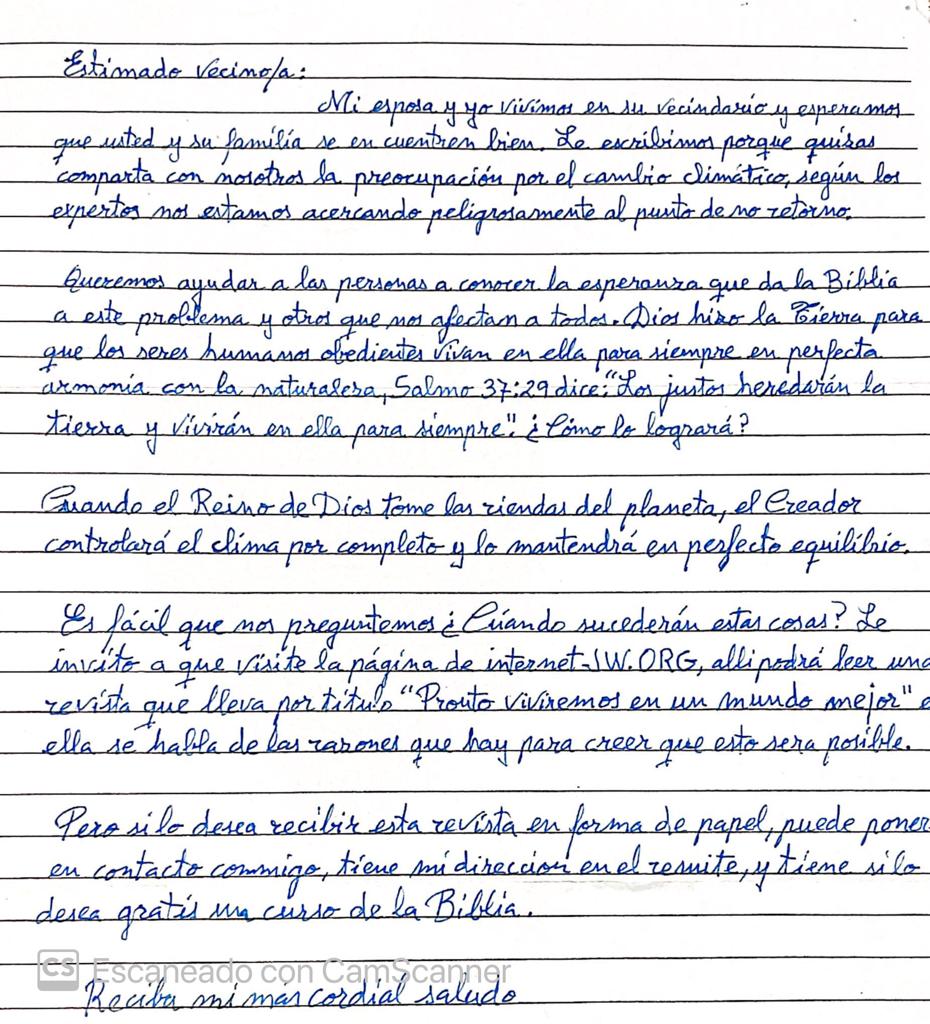 Estimado vecino/a:
Mi esposa y yo vivimos en su vecindario y esperamos
que usted y su familia se en cuentren bien. Le escribimos porque quizas
comparta con nosotros la preocupación por el cambio climático, según los
expertos nos estamos acercando peligrosamente al punto de no retorno.
Queremos ayudar a las personas a conocer la esperanza que da la Biblia
a este problema y otros que nos afectan a todos. Dios hizo la Tierra para
que los seres humanos obedientes vivan en ella para siempre en perfecta
armonía con la naturaleza, Salmo 37:29 dice: "Los justos heredarán la
tierra y vivirán en ella para siempre". ¿Cómo lo logrará?
Cuando el Reino de Dios tome las riendas del planeta, el Creador
controlará el clima por completo y lo mantendrá en perfecto equilibrio.
Es fácil que nos preguntemos ¿Cúando sucederán estas cosas? Le
invito a que visite la página de internet-JW.ORG, alli podrá leer una
revista que lleva por título "Pronto viviremos en un mundo mejor" e
ella se habla de las razones que hay para creer que esto sera posible.
Pero si lo desea recibir esta revista en forma de papel, puede poner
en contacto conmigo, tiene mi direccion en el remite, y tiene si lo
desea gratis un curso de la Biblia.
CS Escaneado con CamScanner
Reciba mi más cordial saludo